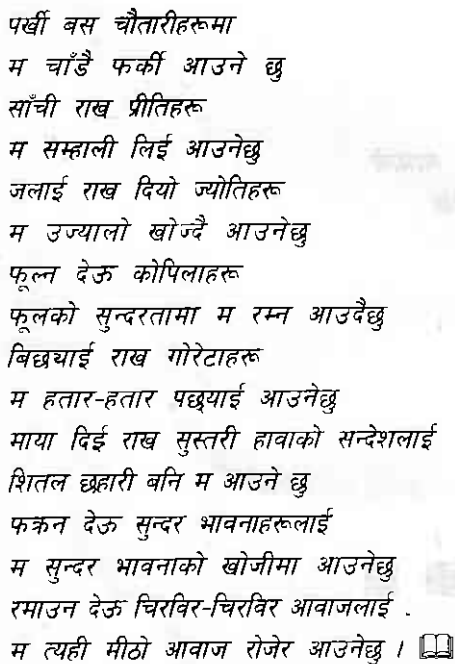 पर्खी बस चौतारीहरूमा
म चाँडै फर्की आउने छु
साँची राख प्रीतिहरू
म सम्हाली लिई आउनेछु
जलाई राख दियो ज्योतिहरू
म उज्यालो खोज्दै आउनेछु
फूल्न देऊ कोपिलाहरू
फूलको सुन्दरतामा म रम्न आउदैछु
बिछ्याई राख गोरेटाहरू
म हतार-हतार पछ्याई आउनेछु
माया दिई राख सुस्तरी हावाको सन्देशलाई
शितल छहारी बनि म आउने छु
फक्रन देऊ सुन्दर भावनाहरूलाई
म सुन्दर भावनाको खोजीमा आउनेछु
रमाउन देऊ चिरविर-चिरविर आवाजलाई .
म त्यही मीठो आवाज रोजेर आउनेछु ।